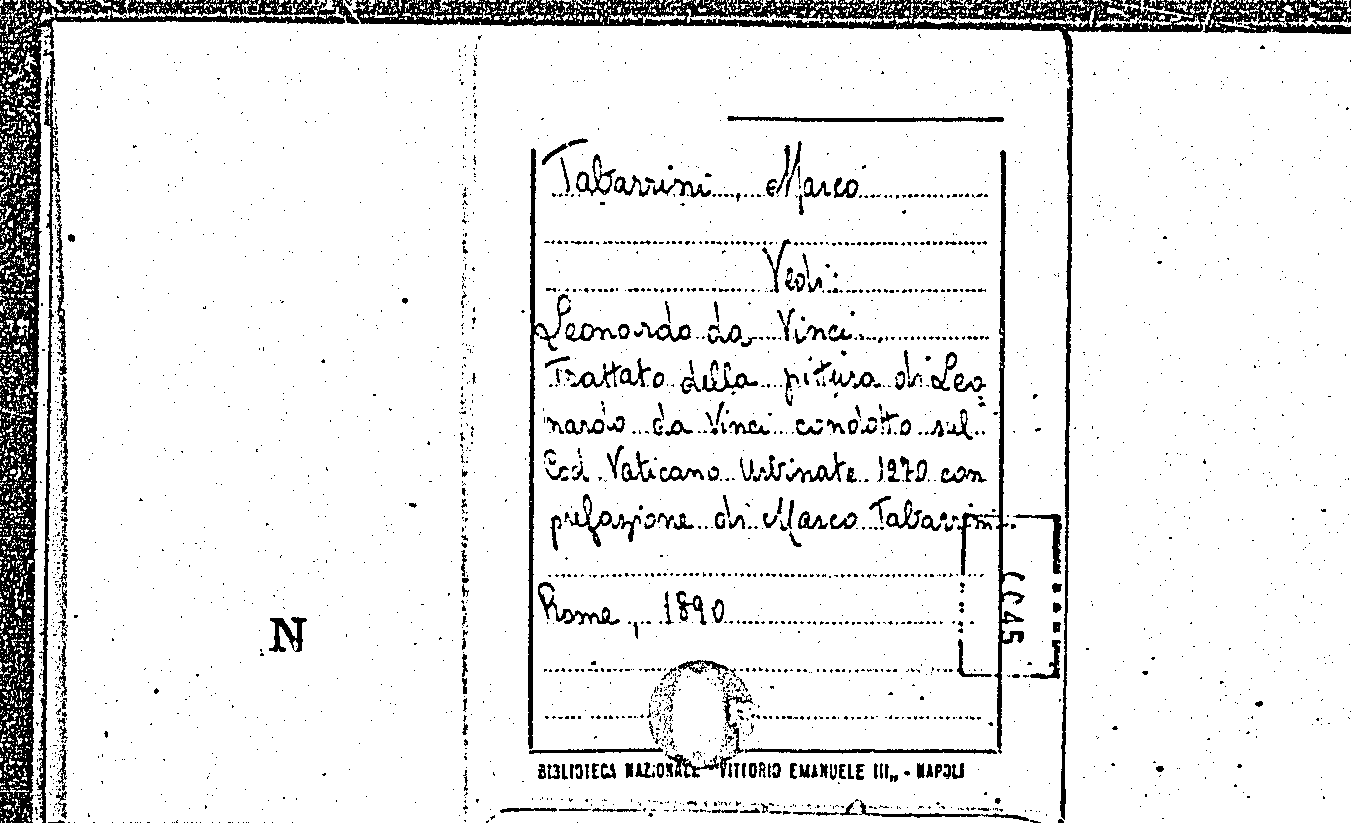 Tabarrini, Marco
Vedi:
Leonardo da Vinci
Trattato della pittura di Leo
nardo da Vinci condotto sul
Cod. Vaticano Urbinate 1270 con
prefazione di Marco Tabarrini
Rome, 1890
N
BIBLIOTECA NAZIONALE "VITTORIO EMANUELE III„ - NAPOLI